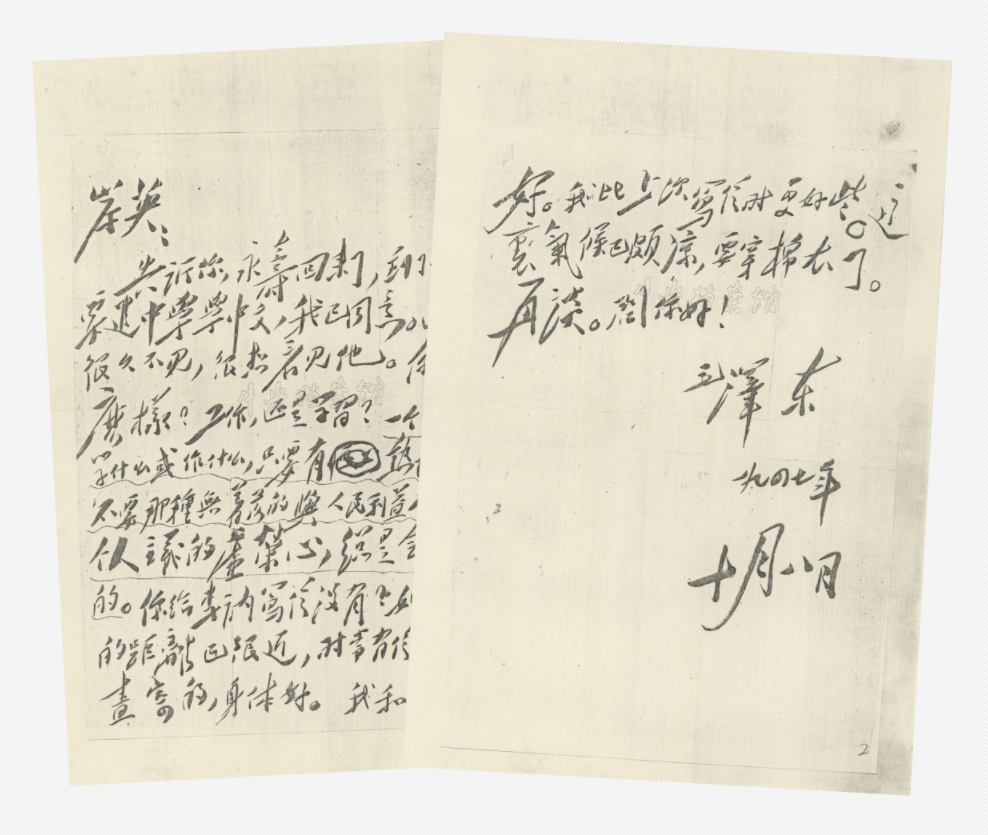 岸英：
告诉你，永寿回来了，到
要进中学学中文，我已同意。
很久不见，很想看见他。
麽样？工作，还是学习？一个
学什么或作什么，只要有
不要那种無着落的与人民利益
个人主义的虚荣心，总是会
的。你给李讷写信没有？
的距離已很近，时常有信
畫寄的，身体好。我和
好。我比上次写信时更好些。这
裏氣候已颇凉，要穿棉衣了。
再谈。问你好！
毛泽东
一九四七年
十月八日
2